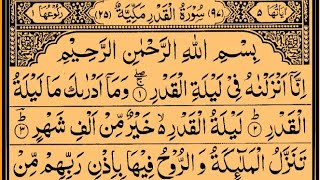 اٰیَاتُهَا ٥ (٩٧) سُوْرَةُ الْقَدْرِ مَكِّیَّةٌ (٢٥) رُكُوْعُهَا ١
بِسْمِ اللّٰهِ الرَّحْمٰنِ الرَّحِیْمِ
اِنَّاۤ اَنْزَلْنٰهُ فِیْ لَیْلَةِ الْقَدْرِ ۚۖ ١ وَمَاۤ اَدْرٰىكَ مَا لَیْلَةُ
الْقَدْرِ ؕ ٢ لَیْلَةُ الْقَدْرِ ۙ۬ خَیْرٌ مِّنْ اَلْفِ شَهْرٍ ؕ ٣
تَنَزَّلُ الْمَلٰٓىِٕكَةُ وَالرُّوْحُ فِیْهَا بِاِذْنِ رَبِّهِمْ مِّنْ